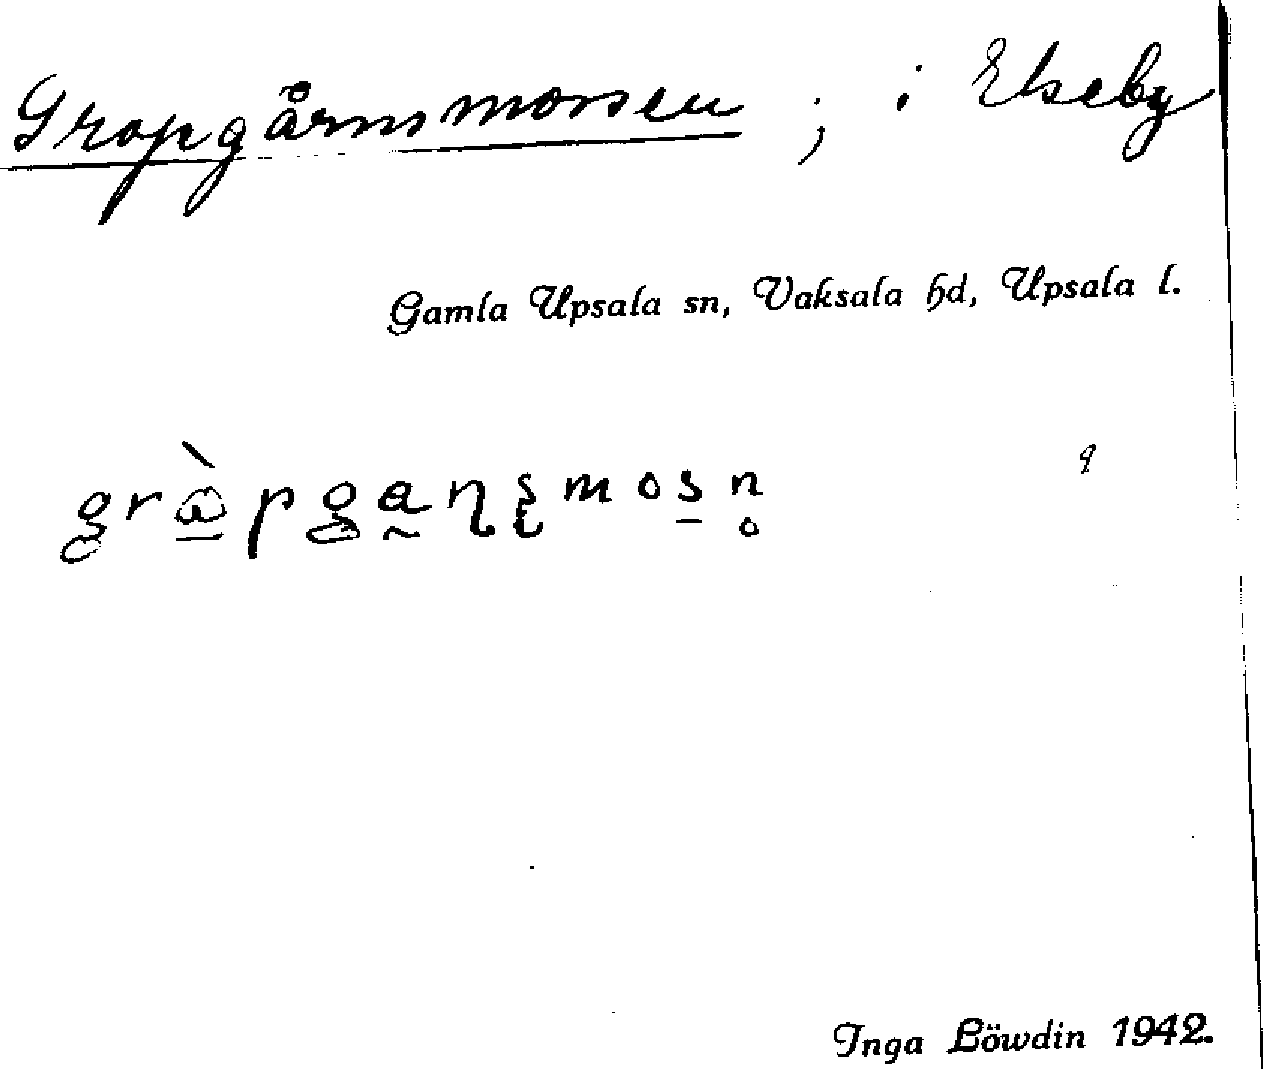 Gropgärnsmossen ; i Ekeby
Gamla Upsala sn, Vaksala hd, Upsala l.
Inga Löwdin 1942.